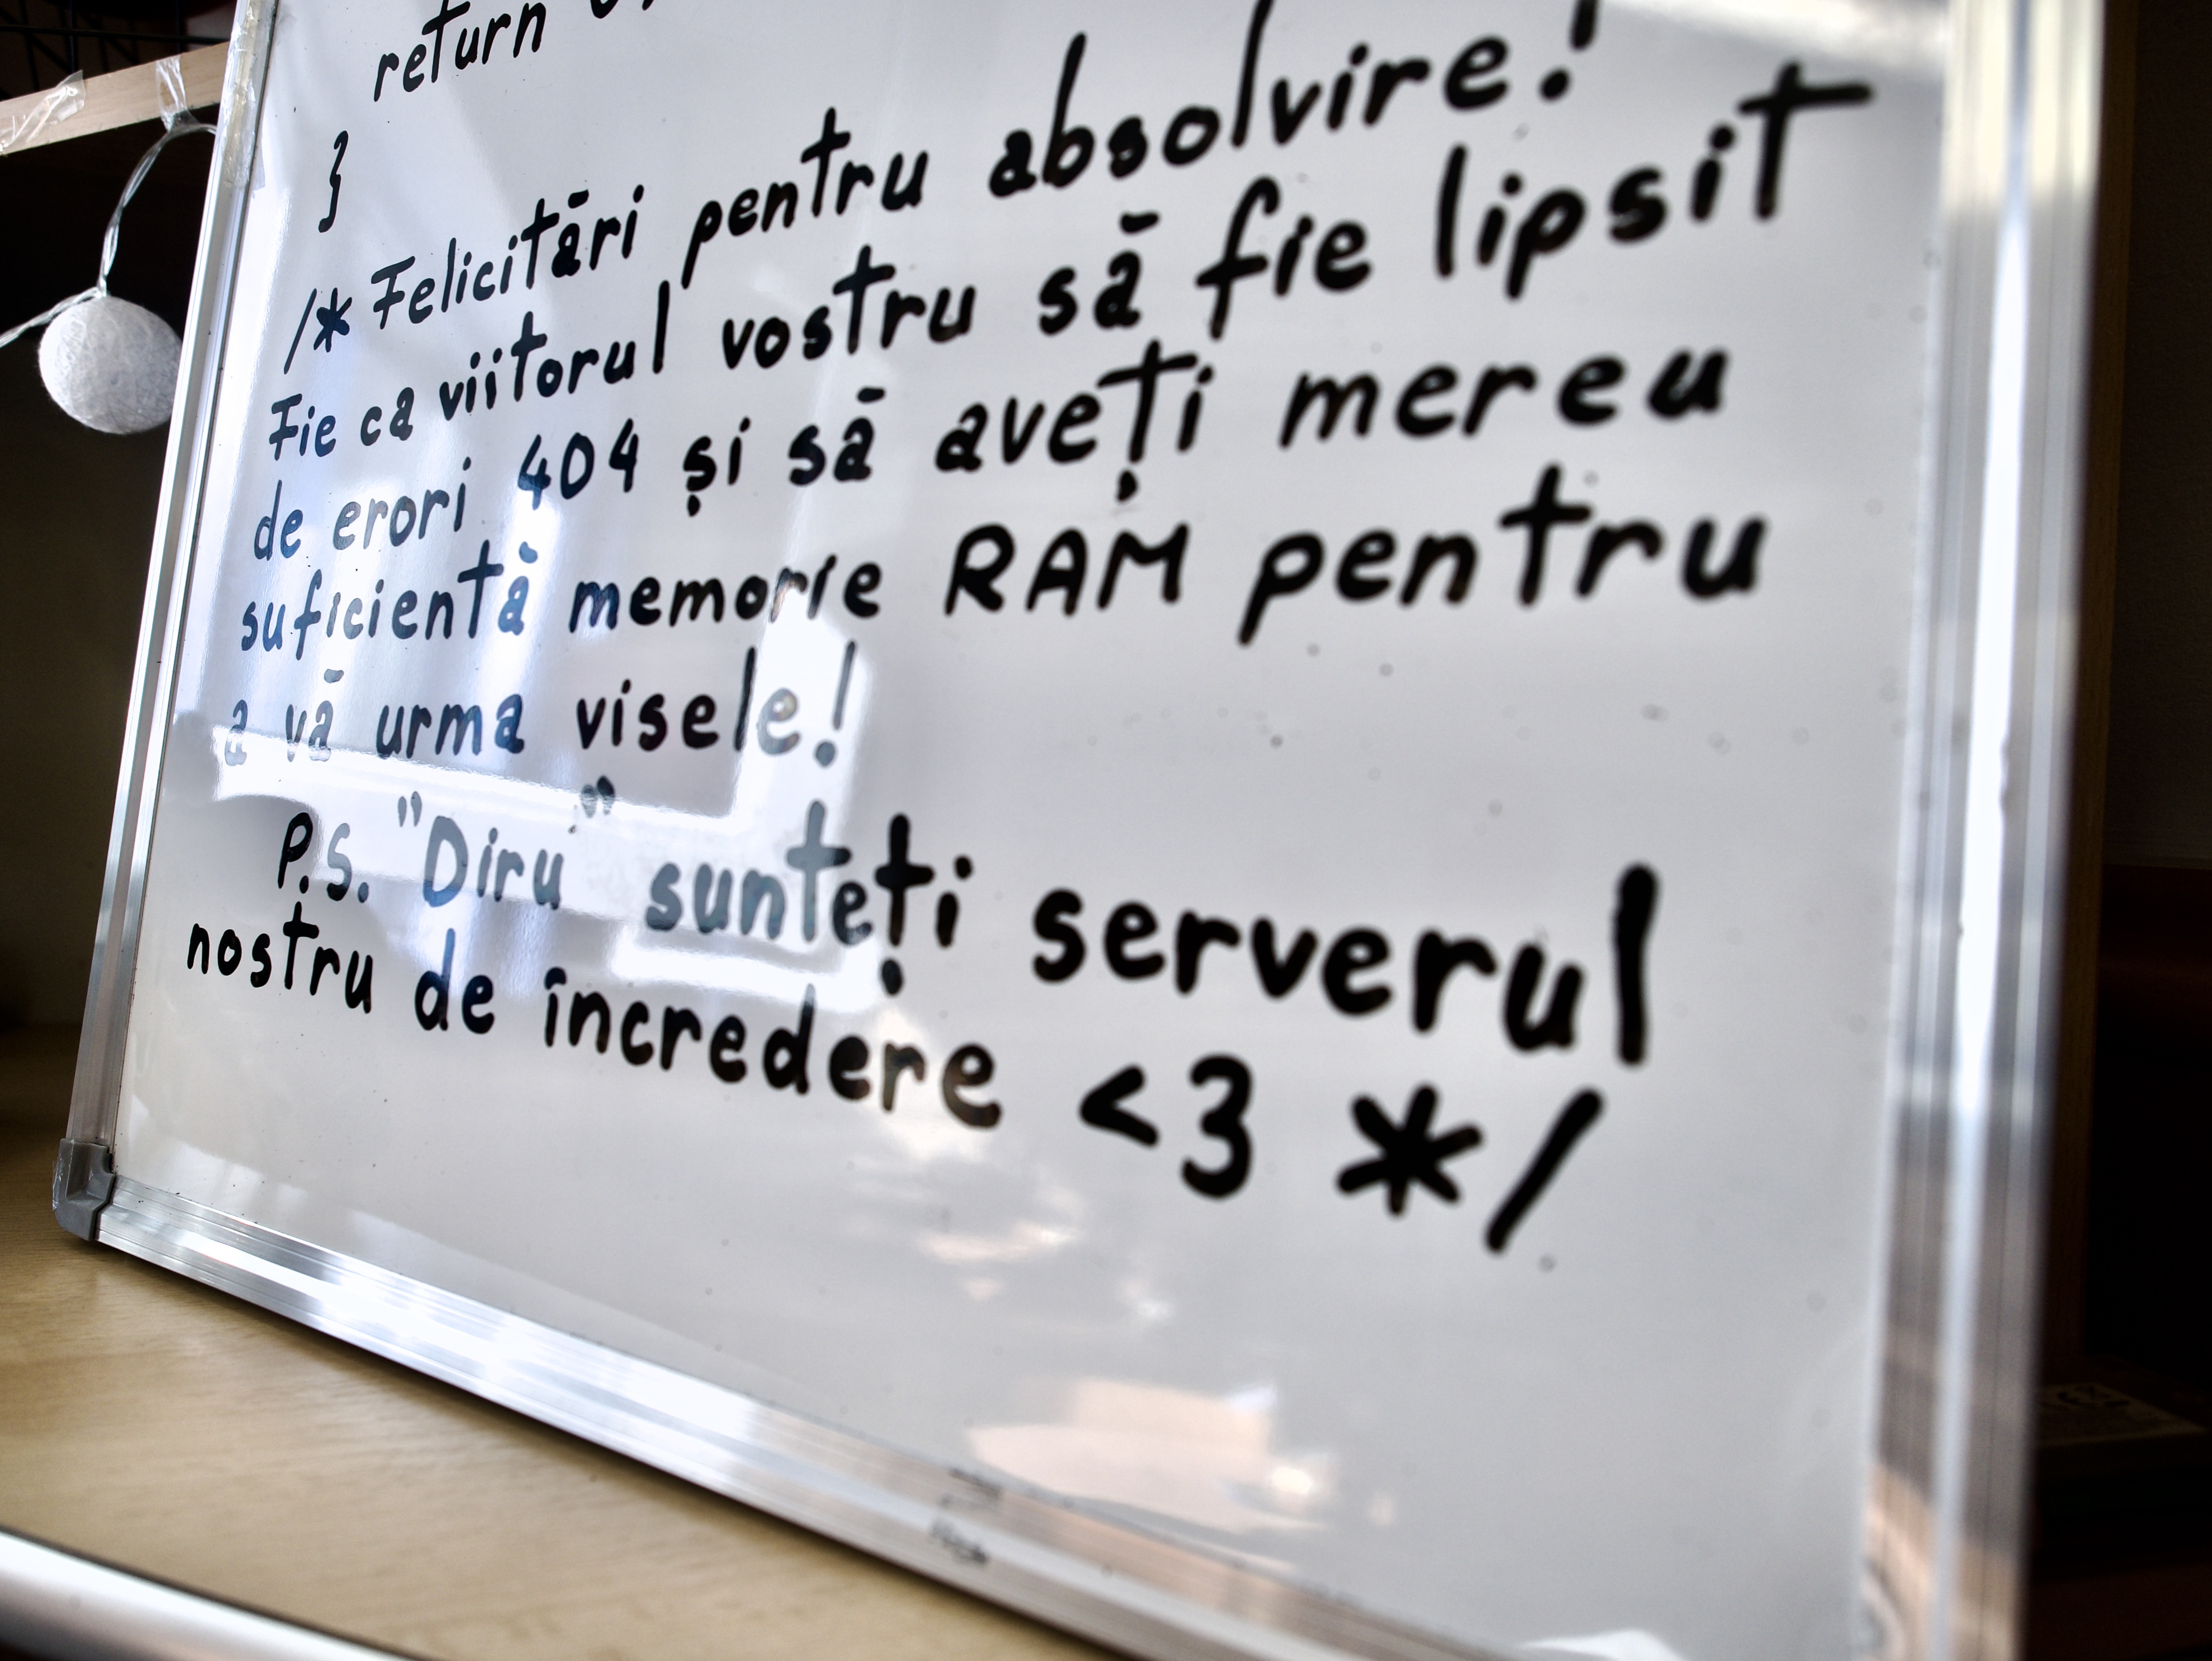 return 0;
}
/* Felicitări pentru absolvire!
Fie ca viitorul vostru să fie lipsit
de erori 404 și să aveți mereu
suficientă memorie RAM pentru
a vă urma visele!
P.S. "Diru" sunteți serverul
nostru de încredere <3 */